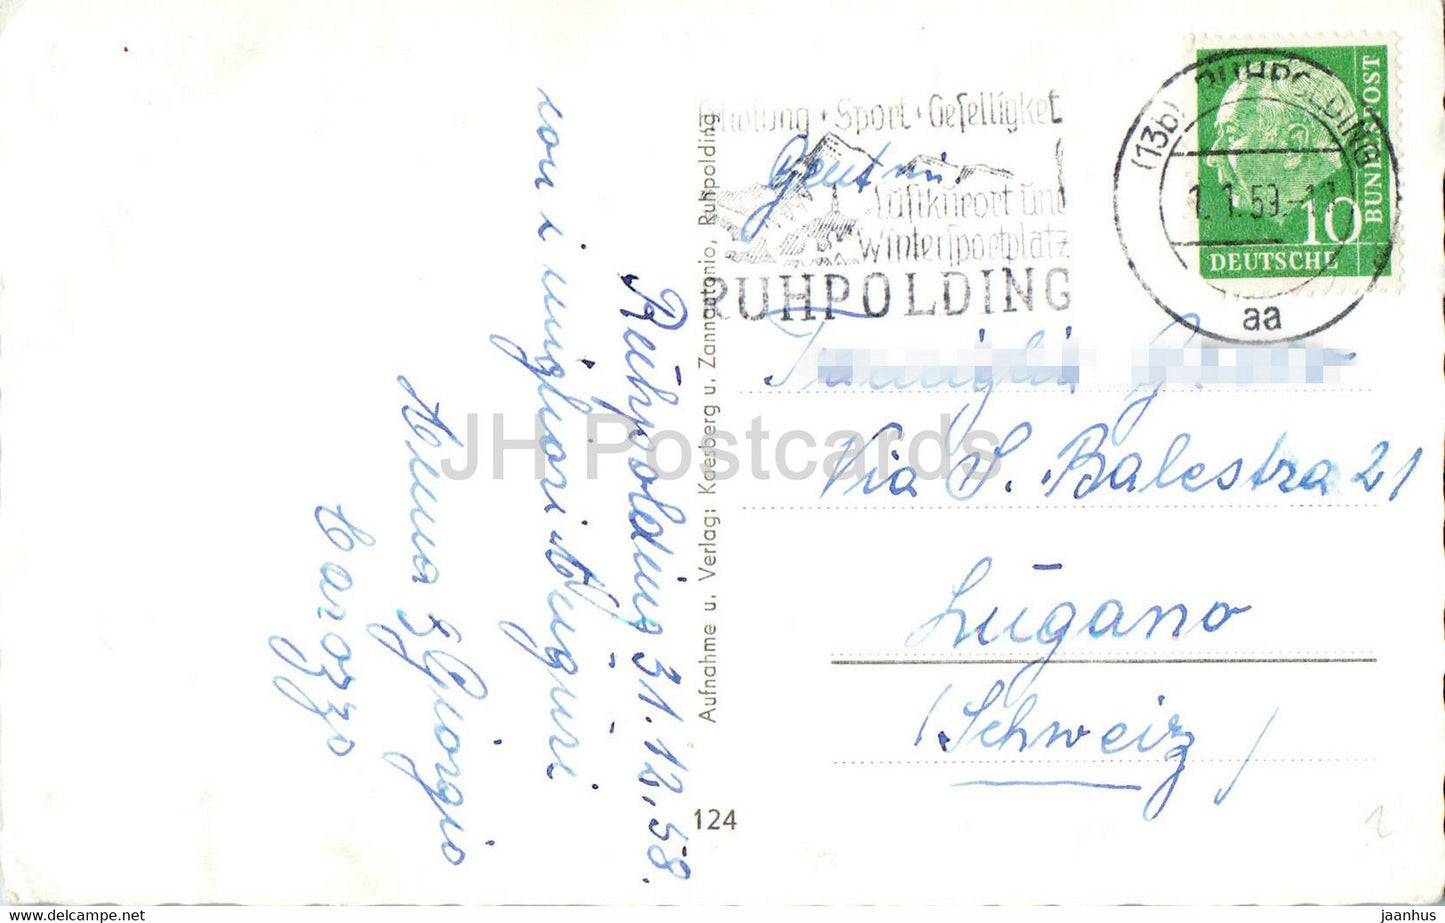 Erholung + Sport + Geselligkeit
Luftkurort und
Wintersportplatz
RUHPOLDING
(13b) RUHPOLDING
1. 1. 59.-17
aa
DEUTSCHE
BUNDESPOST
10
Gent.mi
Via S. Balestra 21
Lugano
(Schweiz)
Ruhpolding 31.12.58.
con i migliori Auguri
Giorgio
Carozzo
Aufnahme u. Verlag: Kaesberg u. Zannantonio, Ruhpolding
124
JH Postcards
jaanhus
www.delcampe.net